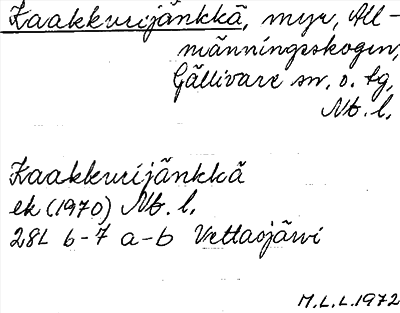 Kaakkurijänkkä, myr, All-
männingsskogen,
Gällivare sn. o. tg,
Nb. l.
Kaakkurijänkkä
ek (1970) Nb. l.
28L 6-7 a-b Vettasjärvi
M.L.L. 1972